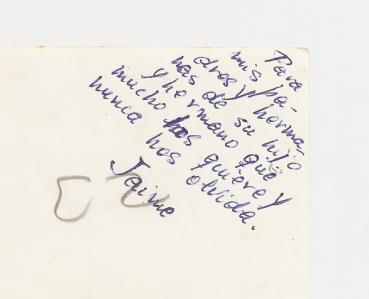 Para
mis pa-
dres y herma-
nas de su hijo
y hermano que
mucho hos quiere y
nunca hos olvida.
Jaime